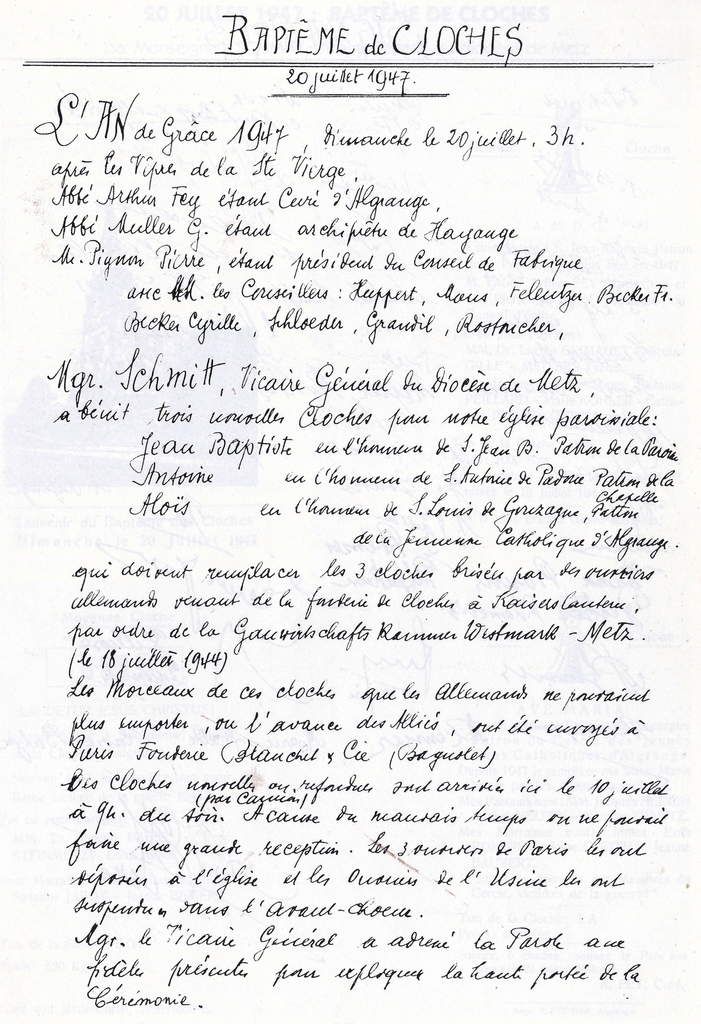 BAPTÊME de CLOCHES
20 juillet 1947.
L'AN de Grâce 1947, Dimanche le 20 juillet. 3h.
après les Vêpres de la Ste Vierge,
Abbé Arthur Fey étant Curé d'Algrange,
Abbé Muller G. étant archiprêtre de Hayange
Mr. Pignon Pierre, étant président du Conseil de Fabrique
avec MM. les Conseillers : Huppert, Maus, Felentzer, Becker Fr.
Becker Cyrille, Schloeder, Grandil, Rostoucher,
Mgr. Schmitt, Vicaire Général du Diocèse de Metz,
a bénit trois nouvelles Cloches pour notre église paroissiale :
Jean Baptiste en l'honneur de S. Jean B. Patron de la Paroisse
Antoine en l'honneur de S. Antoine de Padoue Patron de la
Chapelle
Aloïs en l'honneur de S. Louis de Gonzague, Patron
de la Jeunesse Catholique d'Algrange.
qui doivent remplacer les 3 cloches brisées par des ouvriers
allemands venant de la fonderie de cloches à Kaiserslautern,
par ordre de la Gauwirtschafts Kammer Westmark - Metz.
(le 18 juillet 1944)
Les Morceaux de ces cloches que les Allemands ne pouvaient
plus emporter, vu l'avance des Alliés, ont été envoyés à
Paris Fonderie (Blanchet & Cie (Bagnolet)
Des cloches nouvelles ou refondues sont arrivées ici le 10 juillet
(par Camion)
à 9h. du soir. A cause du mauvais temps on ne pouvait
faire une grande réception. Les 3 ouvriers de Paris les ont
déposées à l'église et les Ouvriers de l'Usine les ont
suspendues dans l'Avant-choeur.
Mgr. le Vicaire Général a adressé la Parole aux
fidèles présentes pour expliquer la haute portée de la
Cérémonie.